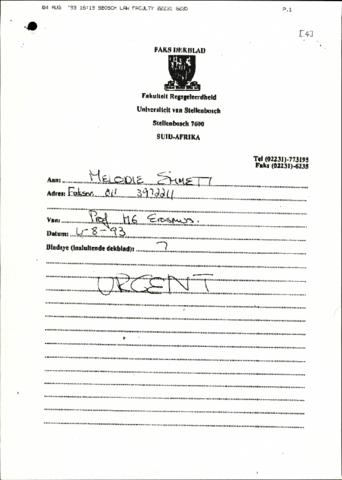 04 AUG '93 16:19 SBOSCH LAW FACULTY
P.1
[4]
FAKS DEKBLAD
Fakulteit Regsgeleerdheid
Universiteit van Stellenbosch
Stellenbosch 7600
SUID-AFRIKA
Tel (02231)-773195
Faks (02231)-6235
Aan: MELODIE
Adres: Faksno. 011 3972211
Van: Prof MG Erasmus.
Datum: 4-8-'93
Bladsye (insluitende dekblad): 7
URGENT